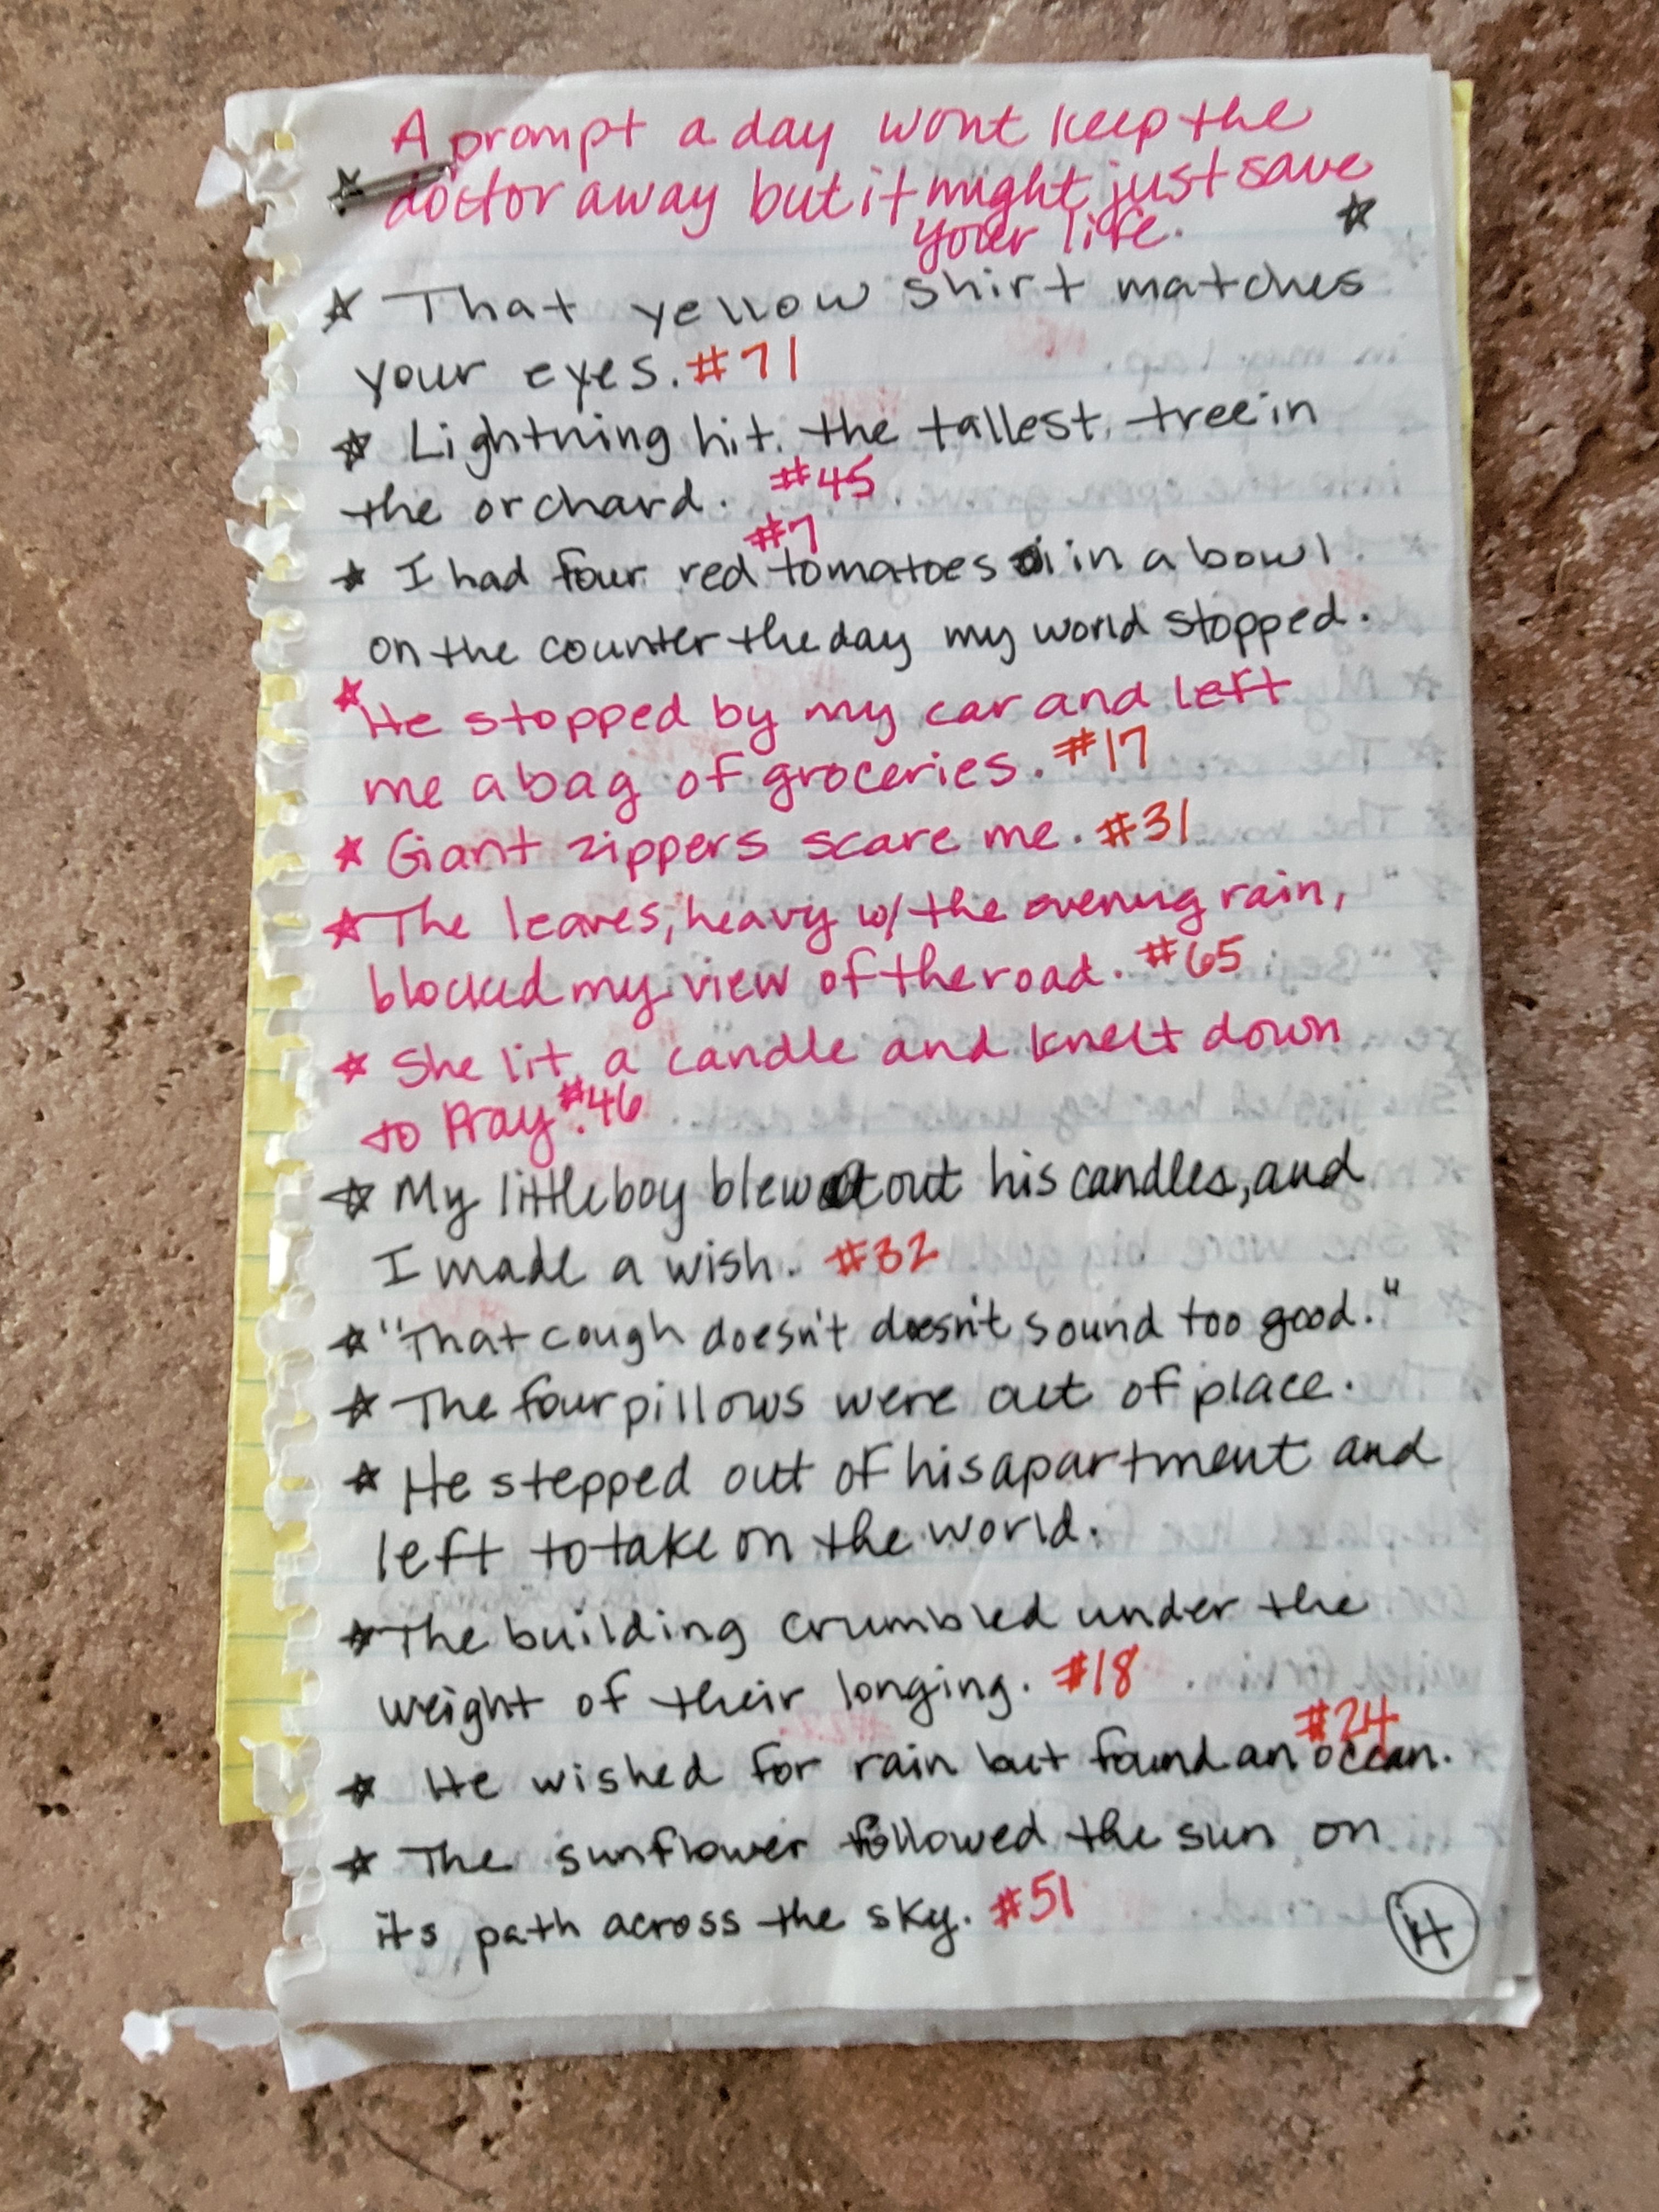 A prompt a day wont keep the
☆ doctor away but it might just save
your life. ☆
☆ That yellow shirt matches
your eyes. #71
☆ Lightning hit the tallest tree in
the orchard. #45
#7
☆ I had four red tomatoes in a bowl
on the counter the day my world stopped.
☆ He stopped by my car and left
me a bag of groceries. #17
☆ Giant zippers scare me. #31
☆ The leaves, heavy w/ the evening rain,
blocked my view of the road. #65
☆ She lit a candle and knelt down
to Pray. #46
☆ My little boy blew out his candles, and
I made a wish. #32
☆ "That cough doesn't doesn't sound too good."
☆ The four pillows were out of place.
☆ He stepped out of his apartment and
left to take on the world.
☆ The building crumbled under the
weight of their longing. #18
#24
☆ He wished for rain but found an ocean.
☆ The sunflower followed the sun on
its path across the sky. #51